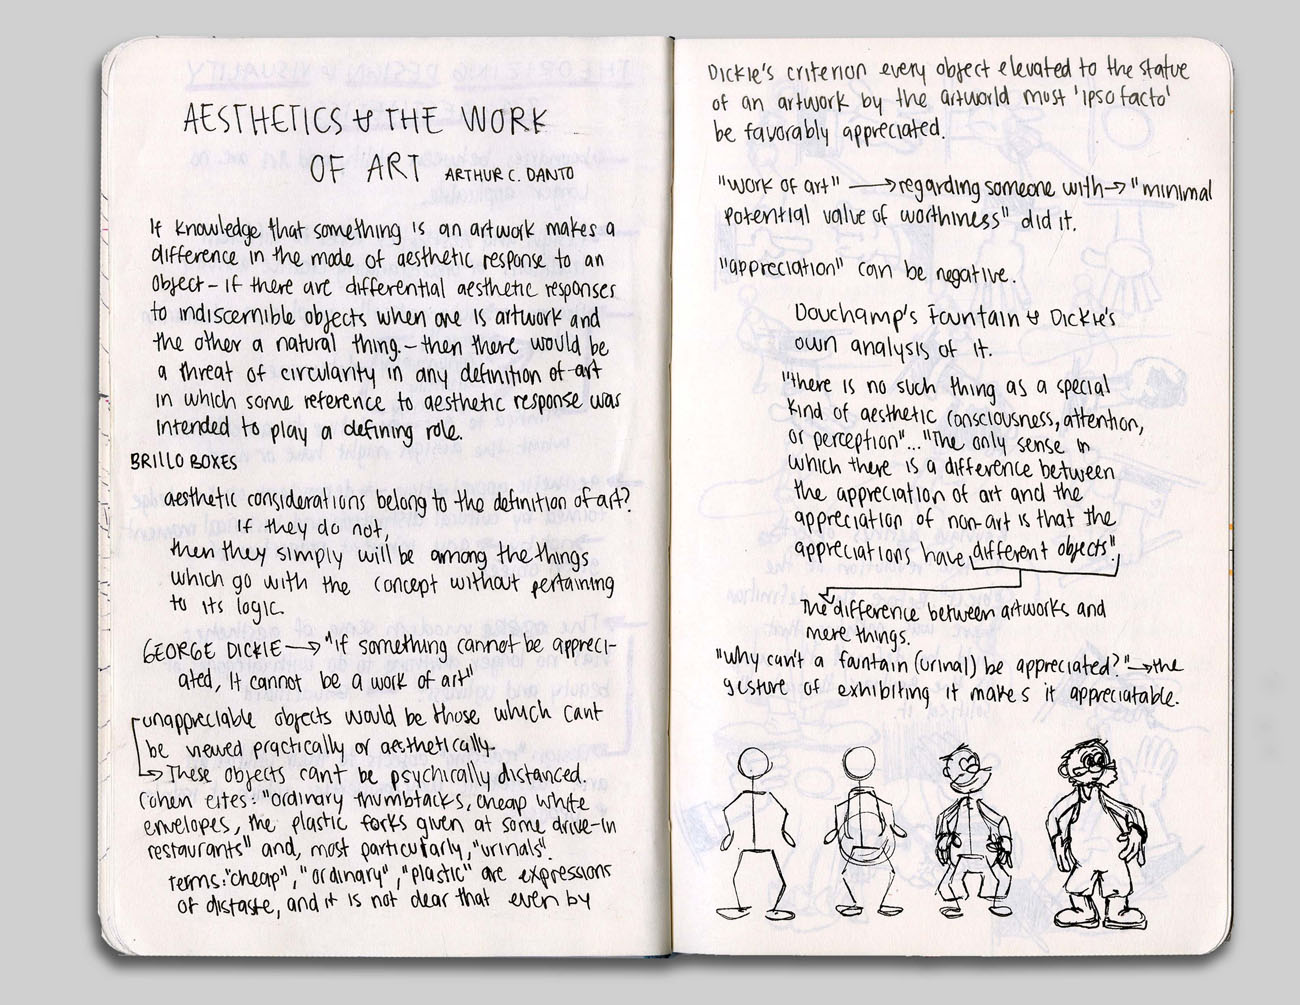 AESTHETICS & THE WORK
OF ART ARTHUR C. DANTO
If knowledge that something is an artwork makes a
difference in the mode of aesthetic response to an
object – if there are differential aesthetic responses
to indiscernible objects when one is artwork and
the other a natural thing. – then there would be
a threat of circularity in any definition of art
in which some reference to aesthetic response was
intended to play a defining role.
BRILLO BOXES
aesthetic considerations belong to the definition of art?
If they do not,
then they simply will be among the things
which go with the concept without pertaining
to its logic.
GEORGE DICKIE → "if something cannot be appreci-
ated, it cannot be a work of art"
unappreciable objects would be those which cant
be viewed practically or aesthetically.
→ These objects can't be psychically distanced.
Cohen cites: "ordinary thumbtacks, cheap white
envelopes, the plastic forks given at some drive-in
restaurants" and, most particularly, "urinals".
Terms: "cheap", "ordinary", "plastic" are expressions
of distaste, and it is not clear that even by
Dickie's criterion every object elevated to the statue
of an artwork by the artworld must 'ipso facto'
be favorably appreciated.
"work of art" → regarding someone with → "minimal
potential value of worthiness" did it.
"appreciation" can be negative.
Douchamp's Fountain & Dickie's
own analysis of it.
"there is no such thing as a special
kind of aesthetic consciousness, attention,
or perception"... "The only sense in
which there is a difference between
the appreciation of art and the
appreciation of non-art is that the
appreciations have different objects".
The difference between artworks and
mere things.
"Why can't a fountain (urinal) be appreciated?" → the
gesture of exhibiting it makes it appreciatable.